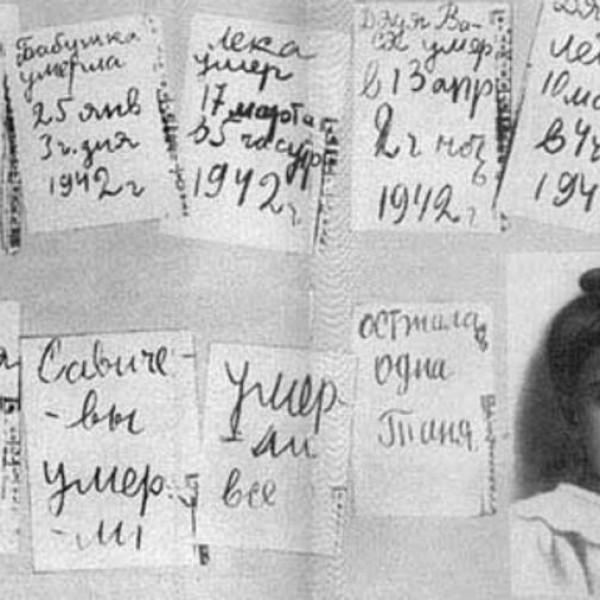 Бабушка
умерла
25 янв
3 ч. дня
1942 г
Лека
умер
17 марта
в 5 часутр
1942 г
Дядя Ва-
ся умер
в 13 апр
2 ч ноч
1942 г
Дя
Ле
10 ма
в 4 ч
194
Савиче-
-вы
умер.
-ли
Умер
-ли
все
осталась
одна
Таня